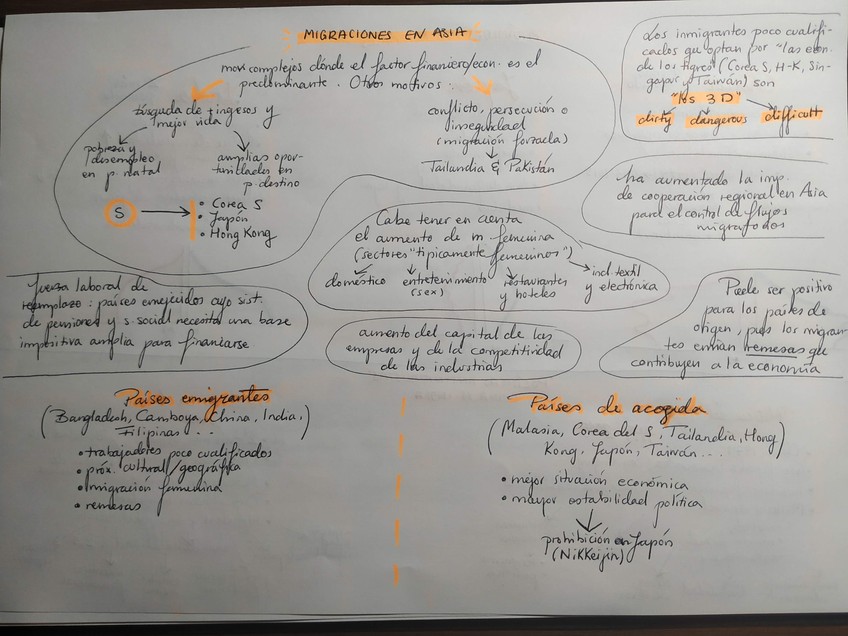 MIGRACIONES EN ASIA
mov. complejos dónde el factor financiero/econ. es el
predominante. Otros motivos:
búsqueda de + ingresos y
mejor vida
pobreza y
desempleo
en p. natal
amplias opor-
tunidades en
p. destino
S
• Corea S
• Japón
• Hong Kong
conflicto, persecución o
inseguridad
(migración forzada)
Tailandia & Pakistán
Los inmigrantes poco cualifi-
cados que optan por "las econ.
de los tigres" (Corea S, H-K, Sin-
gapur, Taiwán) son
"las 3D"
dirty dangerous difficult
ha aumentado la imp.
de cooperación regional en Asia
para el control de flujos
migratorios
Cabe tener en cuenta
el aumento de m. femenina
(sectores "típicamente femeninos")
doméstico
entretenimiento
(sex)
restaurantes
y hoteles
ind. textil
y electrónica
fuerza laboral de
reemplazo: países envejecidos cuyo sist.
de pensiones y s. social necesita una base
impositiva amplia para financiarse
aumento del capital de las
empresas y de la competitividad
de las industrias
Puede ser positivo
para los países de
origen, pues los migran-
tes envían remesas que
contribuyen a la economía
Países emigrantes
(Bangladesh, Camboya, China, India,
Filipinas...)
• trabajadores poco cualificados
• próx. cultural/geográfica
• migración femenina
• remesas
Países de acogida
(Malasia, Corea del S, Tailandia, Hong
Kong, Japón, Taiwán...)
• mejor situación económica
• mayor estabilidad política
prohibición en Japón
(Nikkeijin)